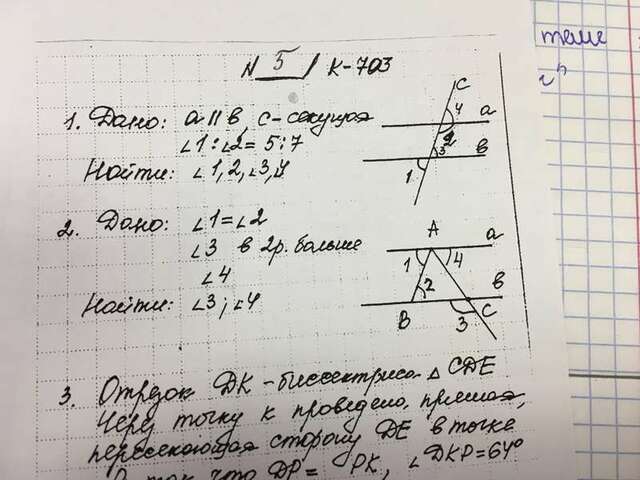 N 5 / К-703
1. Дано: a || в с-секущая
∠1:∠2 = 5:7
Найти: ∠1,2,∠3,4
c
4
a
2
3
в
1
2. Дано: ∠1=∠2
∠3 в 2р. больше
∠4
Найти: ∠3; ∠4
A
a
1
4
2
в
B
3
C
3. Отрезок DK-биссектриса △ CDE
Через точку К проведена прямая,
пересекающая сторону DE в точке
так что DP= PK, ∠DKP=64°
теме